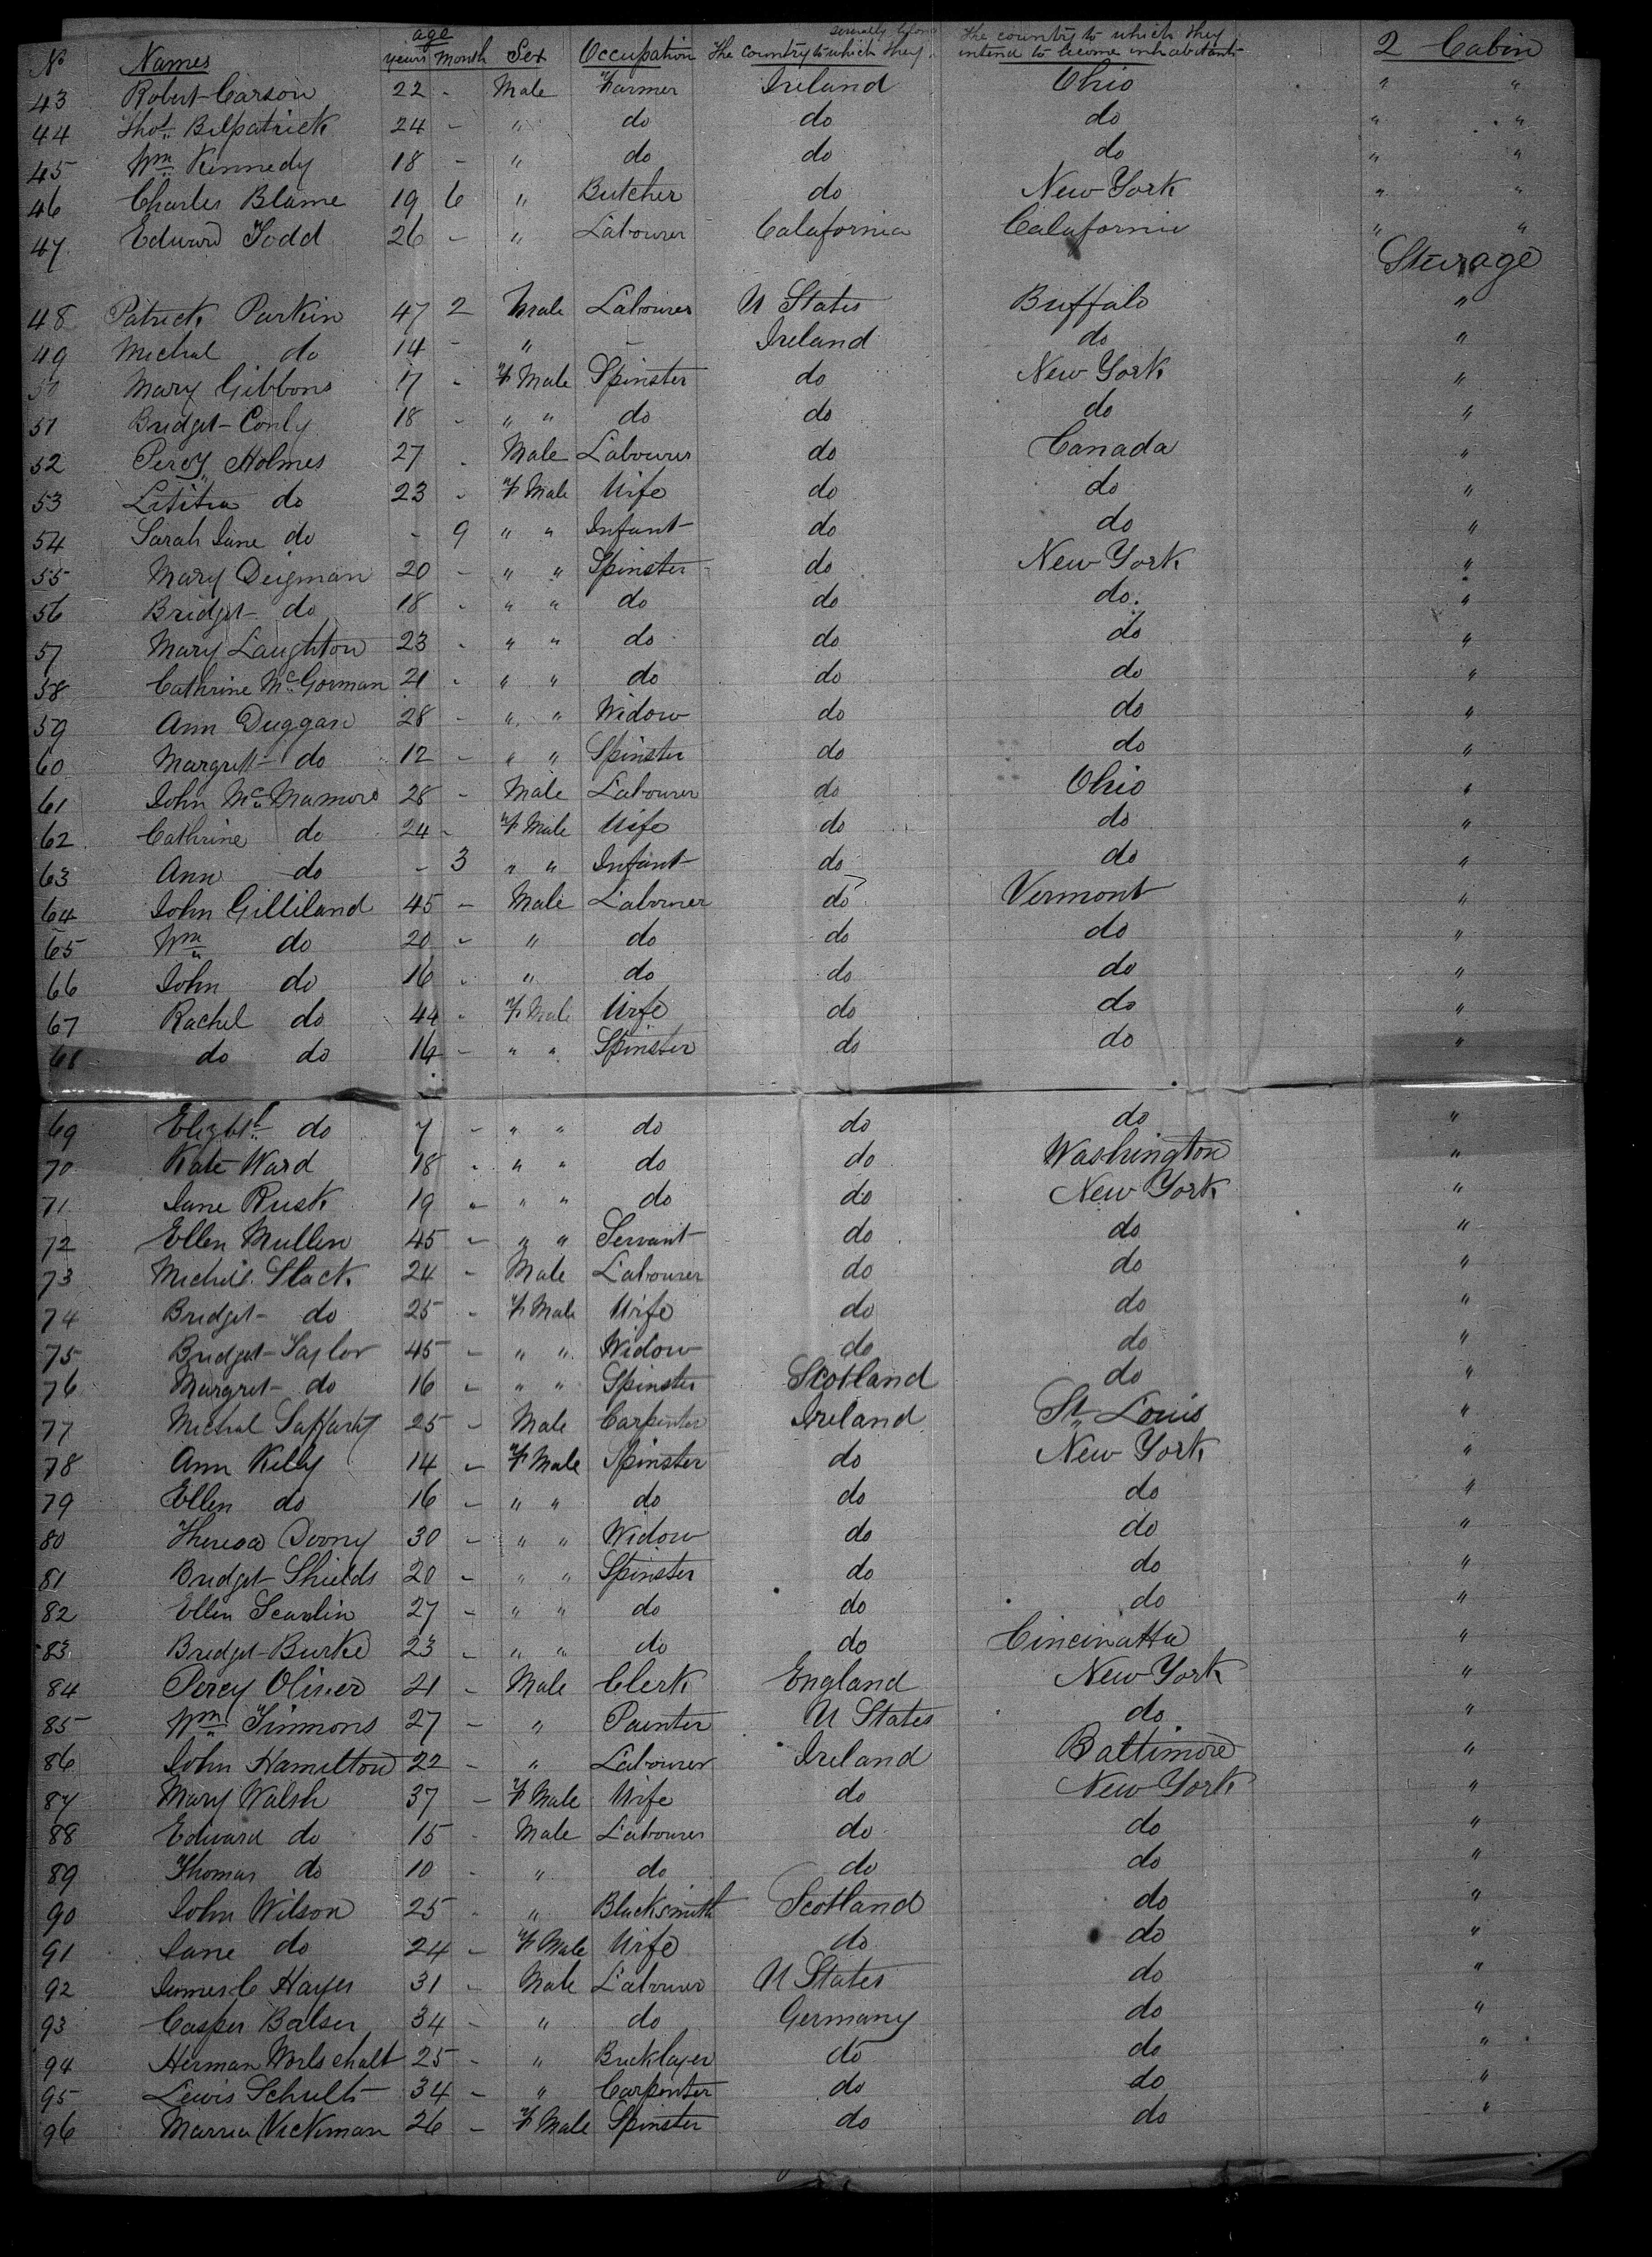 age severally belong The country to which they
No Names years Month Sex Occupation The Country to which they intend to become inhabitants 2 Cabin
43 Robert Carson 22 - Male Farmer Ireland Ohio " "
44 Thos Bilpatrick 24 - " do do do " "
45 Wm Kennedy 18 - " do do do " "
46 Charles Blame 19 6 " Butcher do New York " "
47 Edward Todd 26 - " Labourer Calafornia Calafornia " "
Sterage
48 Patrick Parkin 47 2 Male Labourer U States Buffalo "
49 Michal do 14 - " - Ireland do "
50 Mary Gibbons 17 - F Male Spinster do New York "
51 Bridget Conly 18 - " " do do do "
52 Percy Holmes 27 - Male Labourer do Canada "
53 Lititia do 23 - F Male Wife do do "
54 Sarah Jane do - 9 " " Infant do do "
55 Mary Deigman 20 - " " Spinster do New York "
56 Bridget do 18 - " " do do do "
57 Mary Laughton 23 - " " do do do "
58 Cathrine McGorman 21 - " " do do do "
59 Ann Duggan 28 - " " Widow do do "
60 Margrett do 12 - " " Spinster do do "
61 John McMamore 28 - Male Labourer do Ohio "
62 Cathrine do 24 - F Male Wife do do "
63 Ann do - 3 " " Infant do do "
64 John Gilliland 45 - Male Labourer do Vermont "
65 Wm do 20 - " do do do "
66 John do 16 - " do do do "
67 Rachel do 44 - F Male Wife do do "
68 do do 14 - " " Spinster do do "
69 Elizbth do 7 - " " do do do "
70 Kate Ward 18 - " " do do Washington "
71 Jane Rusk 19 - " " do do New York "
72 Ellen Mullen 45 - " " Servant do do "
73 Michl Slack 24 - Male Labourer do do "
74 Bridget do 25 - F Male Wife do do "
75 Bridget Taylor 45 - " " Widow do do "
76 Margret do 16 - " " Spinster Scotland do "
77 Michal Saffarty 25 - Male Carpenter Ireland St Louis "
78 Ann Kelly 14 - F Male Spinster do New York "
79 Ellen do 16 - " " do do do "
80 Theresa Doony 30 - " " Widow do do "
81 Bridget Shields 20 - " " Spinster do do "
82 Ellen Scanlin 27 - " " do do do "
83 Bridget Burke 23 - " " do do Cincinatta "
84 Percy Oliver 21 - Male Clerk England New York "
85 Wm Timmons 27 - " Painter U States do "
86 John Hamilton 22 - " Labourer Ireland Baltimore "
87 Mary Walsh 37 - F Male Wife do New York "
88 Edward do 15 - Male Labourer do do "
89 Thomas do 10 - " do do do "
90 John Wilson 25 - " Blacksmith Scotland do "
91 Jane do 24 - F Male Wife do do "
92 James C Hayes 31 - Male Labourer U States do "
93 Casper Balser 34 - " do Germany do "
94 Herman 25 - " Bricklayer do do "
95 Lewis Schult 34 - " Carpenter do do "
96 Marria Vickman 26 - F Male Spinster do do "